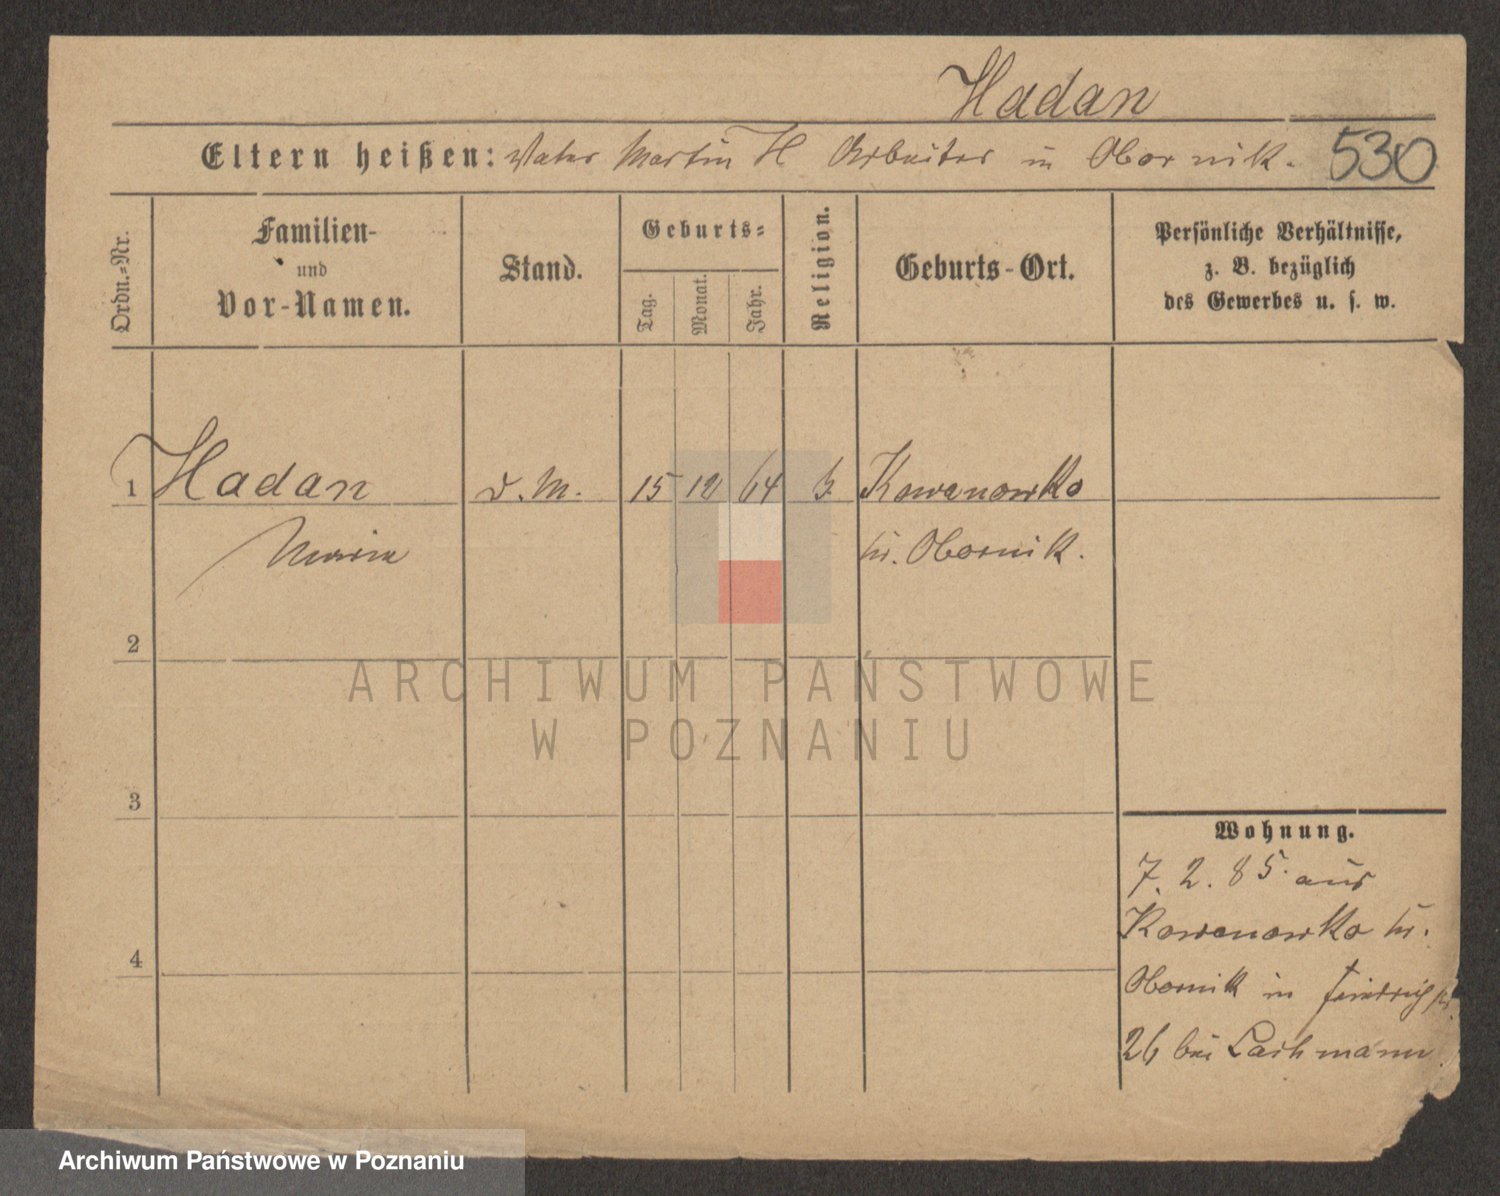 Hadan
Eltern heißen: Vater Martin H Arbeiter in Obornik.
530
Ordn.-Nr.
Familien-
und
Vor-Namen.
Stand.
Geburts-
Tag.
Monat.
Jahr.
Religion.
Geburts-Ort.
Persönliche Verhältnisse,
z. B. bezüglich
des Gewerbes u. s. w.
1 Hadan d. M. 15 12 64 Kowanowko
Maria Kr. Obornik.
2
3
4
Wohnung.
7. 2. 85. aus
Kowanowko Kr.
Obornik in Friedrichstr.
26 bei Lachmann
ARCHIWUM PAŃSTWOWE
W POZNANIU
Archiwum Państwowe w Poznaniu